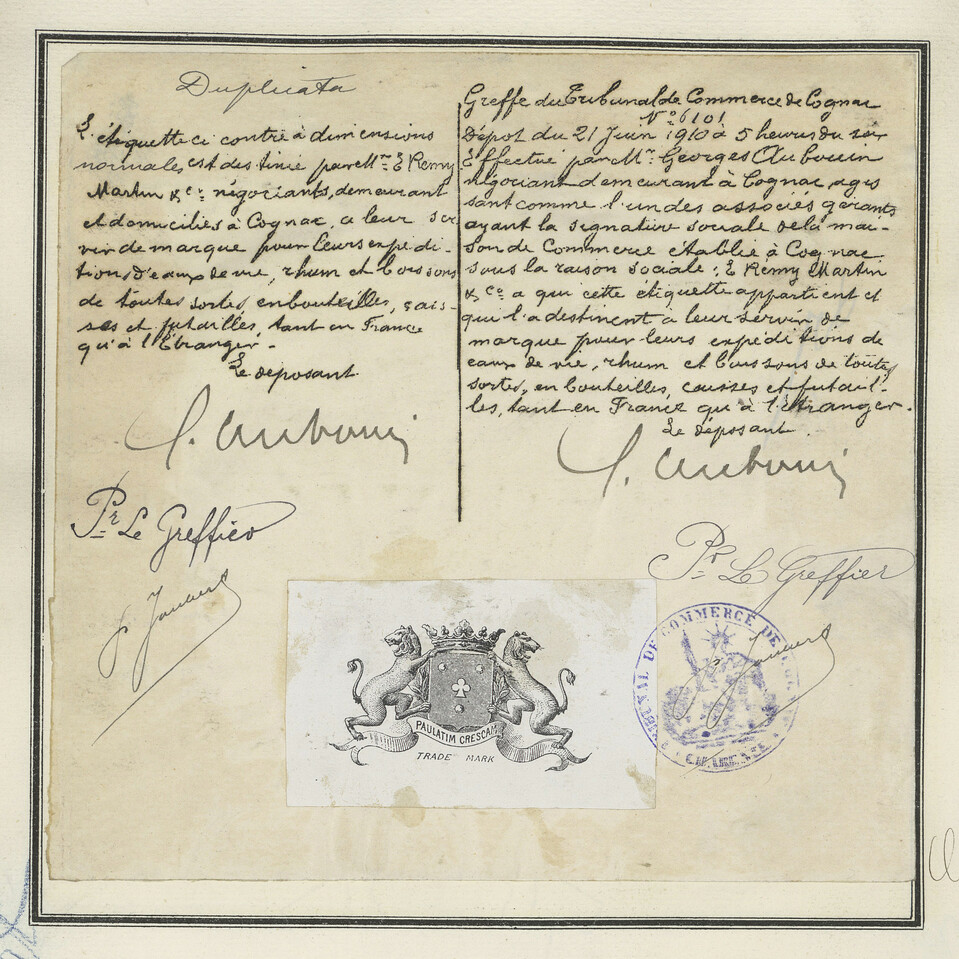 Duplicata
L'étiquette ci contre à dimensions
normales est destinée par Mrs E Remy
Martin & Cie négociants, demeurant
et domiciliés à Cognac, a leur ser
vir de marque pour leurs expédi-
tions d'eaux de vie, rhum et boissons
de toutes sortes en bouteilles, cais-
ses et futailles, tant en France
qu'à l'Étranger.-
Le déposant
G. Aubouin
Pr Le Greffier
Greffe du Tribunal de Commerce de Cognac
No 6101
Dépot du 21 Juin 1910 à 5 heures du soir
Effectué par Mr Georges Aubouin
négociant demeurant à Cognac, agis
sant comme l'un des associés gérants
ayant la signature sociale de la mai-
son de Commerce établie à Cognac
sous la raison sociale: E Remy Martin
& Co a qui cette étiquette appartient et
qui l'a destinent a leur servir de
marque pour leurs expéditions de
eaux de vie, rhum et boissons de toutes
sortes, en bouteilles, caisses et futail-
les, tant en France qu'à l'étranger.
Le déposant.
G. Aubouin
Pr Le Greffier
PAULATIM CRESCAM
TRADE MARK
TRIBUNAL DE COMMERCE DE